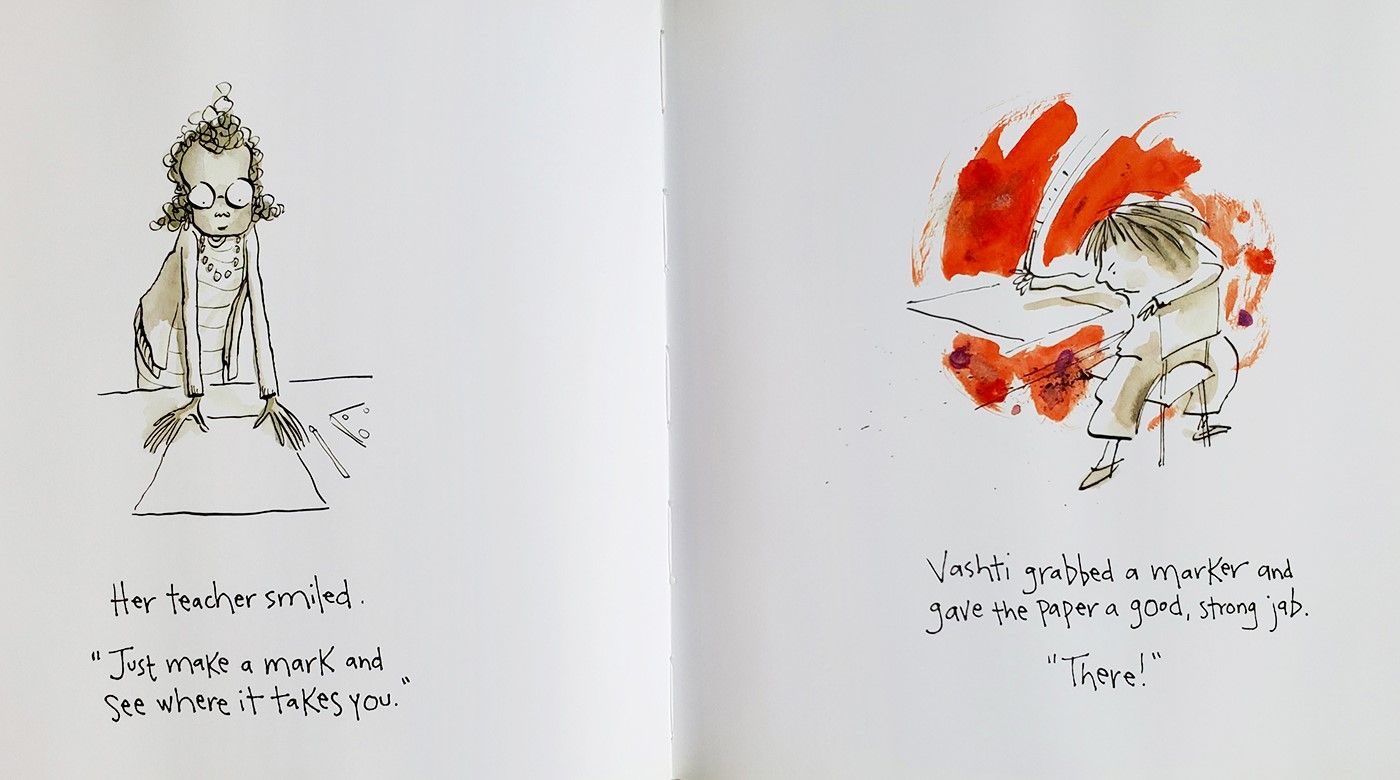 Her teacher smiled.
"Just make a mark and
see where it takes you."
Vashti grabbed a marker and
gave the paper a good, strong jab.
"There!"